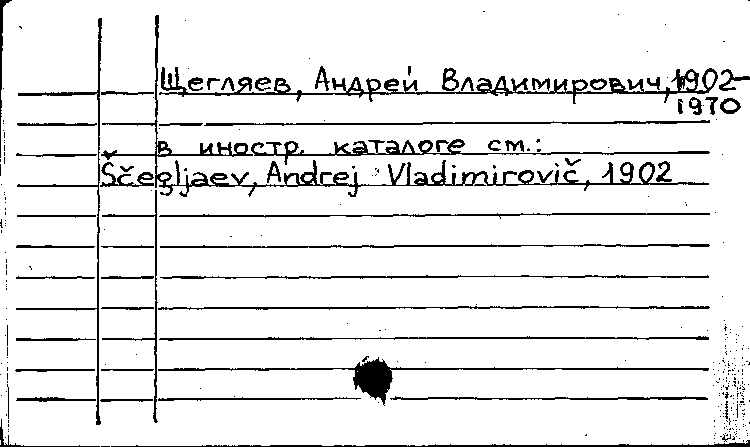 Щегляев, Андрей Владимирович, 1902-
1970
в иностр. каталоге см.:
Ščegljaev, Andrej Vladimirovič, 1902